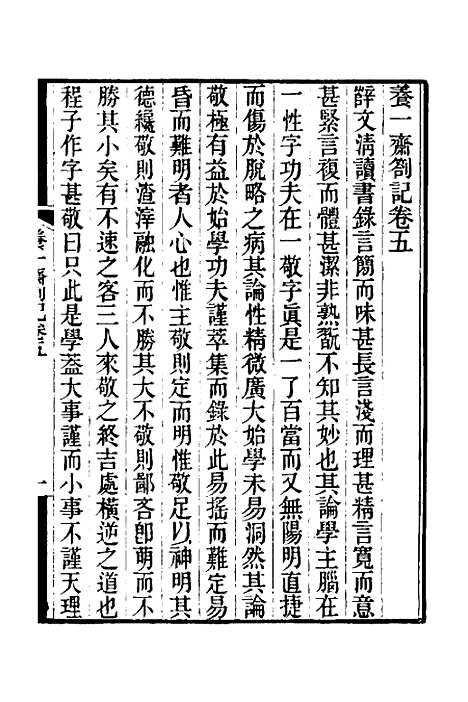 養一齋劄記卷五
薛文清讀書錄言簡而味甚長言淺而理甚精言寬而意
甚緊言複而體甚潔非熟翫不知其妙也其論學主腦在
一性字功夫在一敬字眞是一了百當而又無陽明直捷
而傷於脫略之病其論性精微廣大始學未易洞然其論
敬極有益於始學功夫謹萃集而錄於此易搖而難定易
昏而難明者人心也惟主敬則定而明惟敬足以神明其
德纔敬則渣滓融化而不勝其大不敬則鄙吝卽萌而不
勝其小矣有不速之客三人來敬之終吉處橫逆之道也
程子作字甚敬曰只此是學葢大事謹而小事不謹天理
養一齋劄記卷五
一